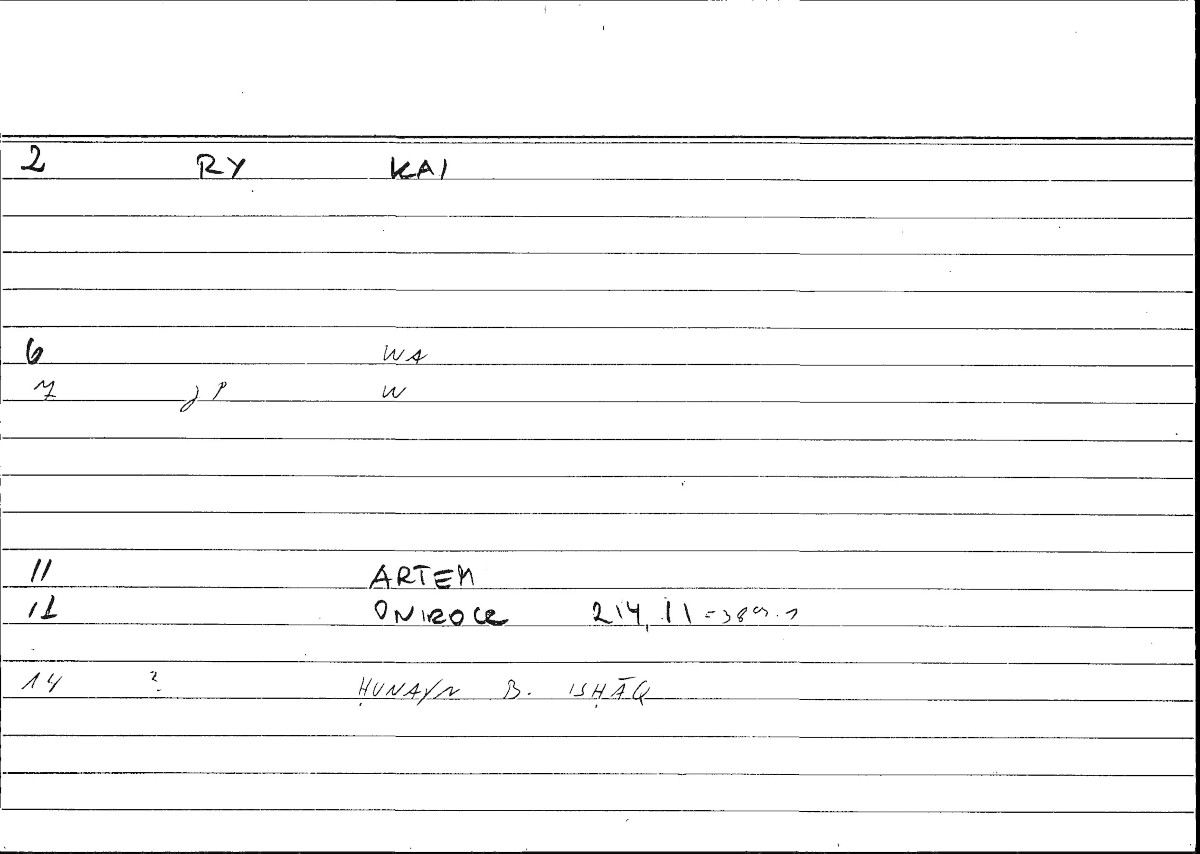 2 RY KAI
6 WA
7 JP W
11 ARTEM
12 ONIROCR 214,11 =389.1
14 ? ḤUNAYN B. ISḤĀQ